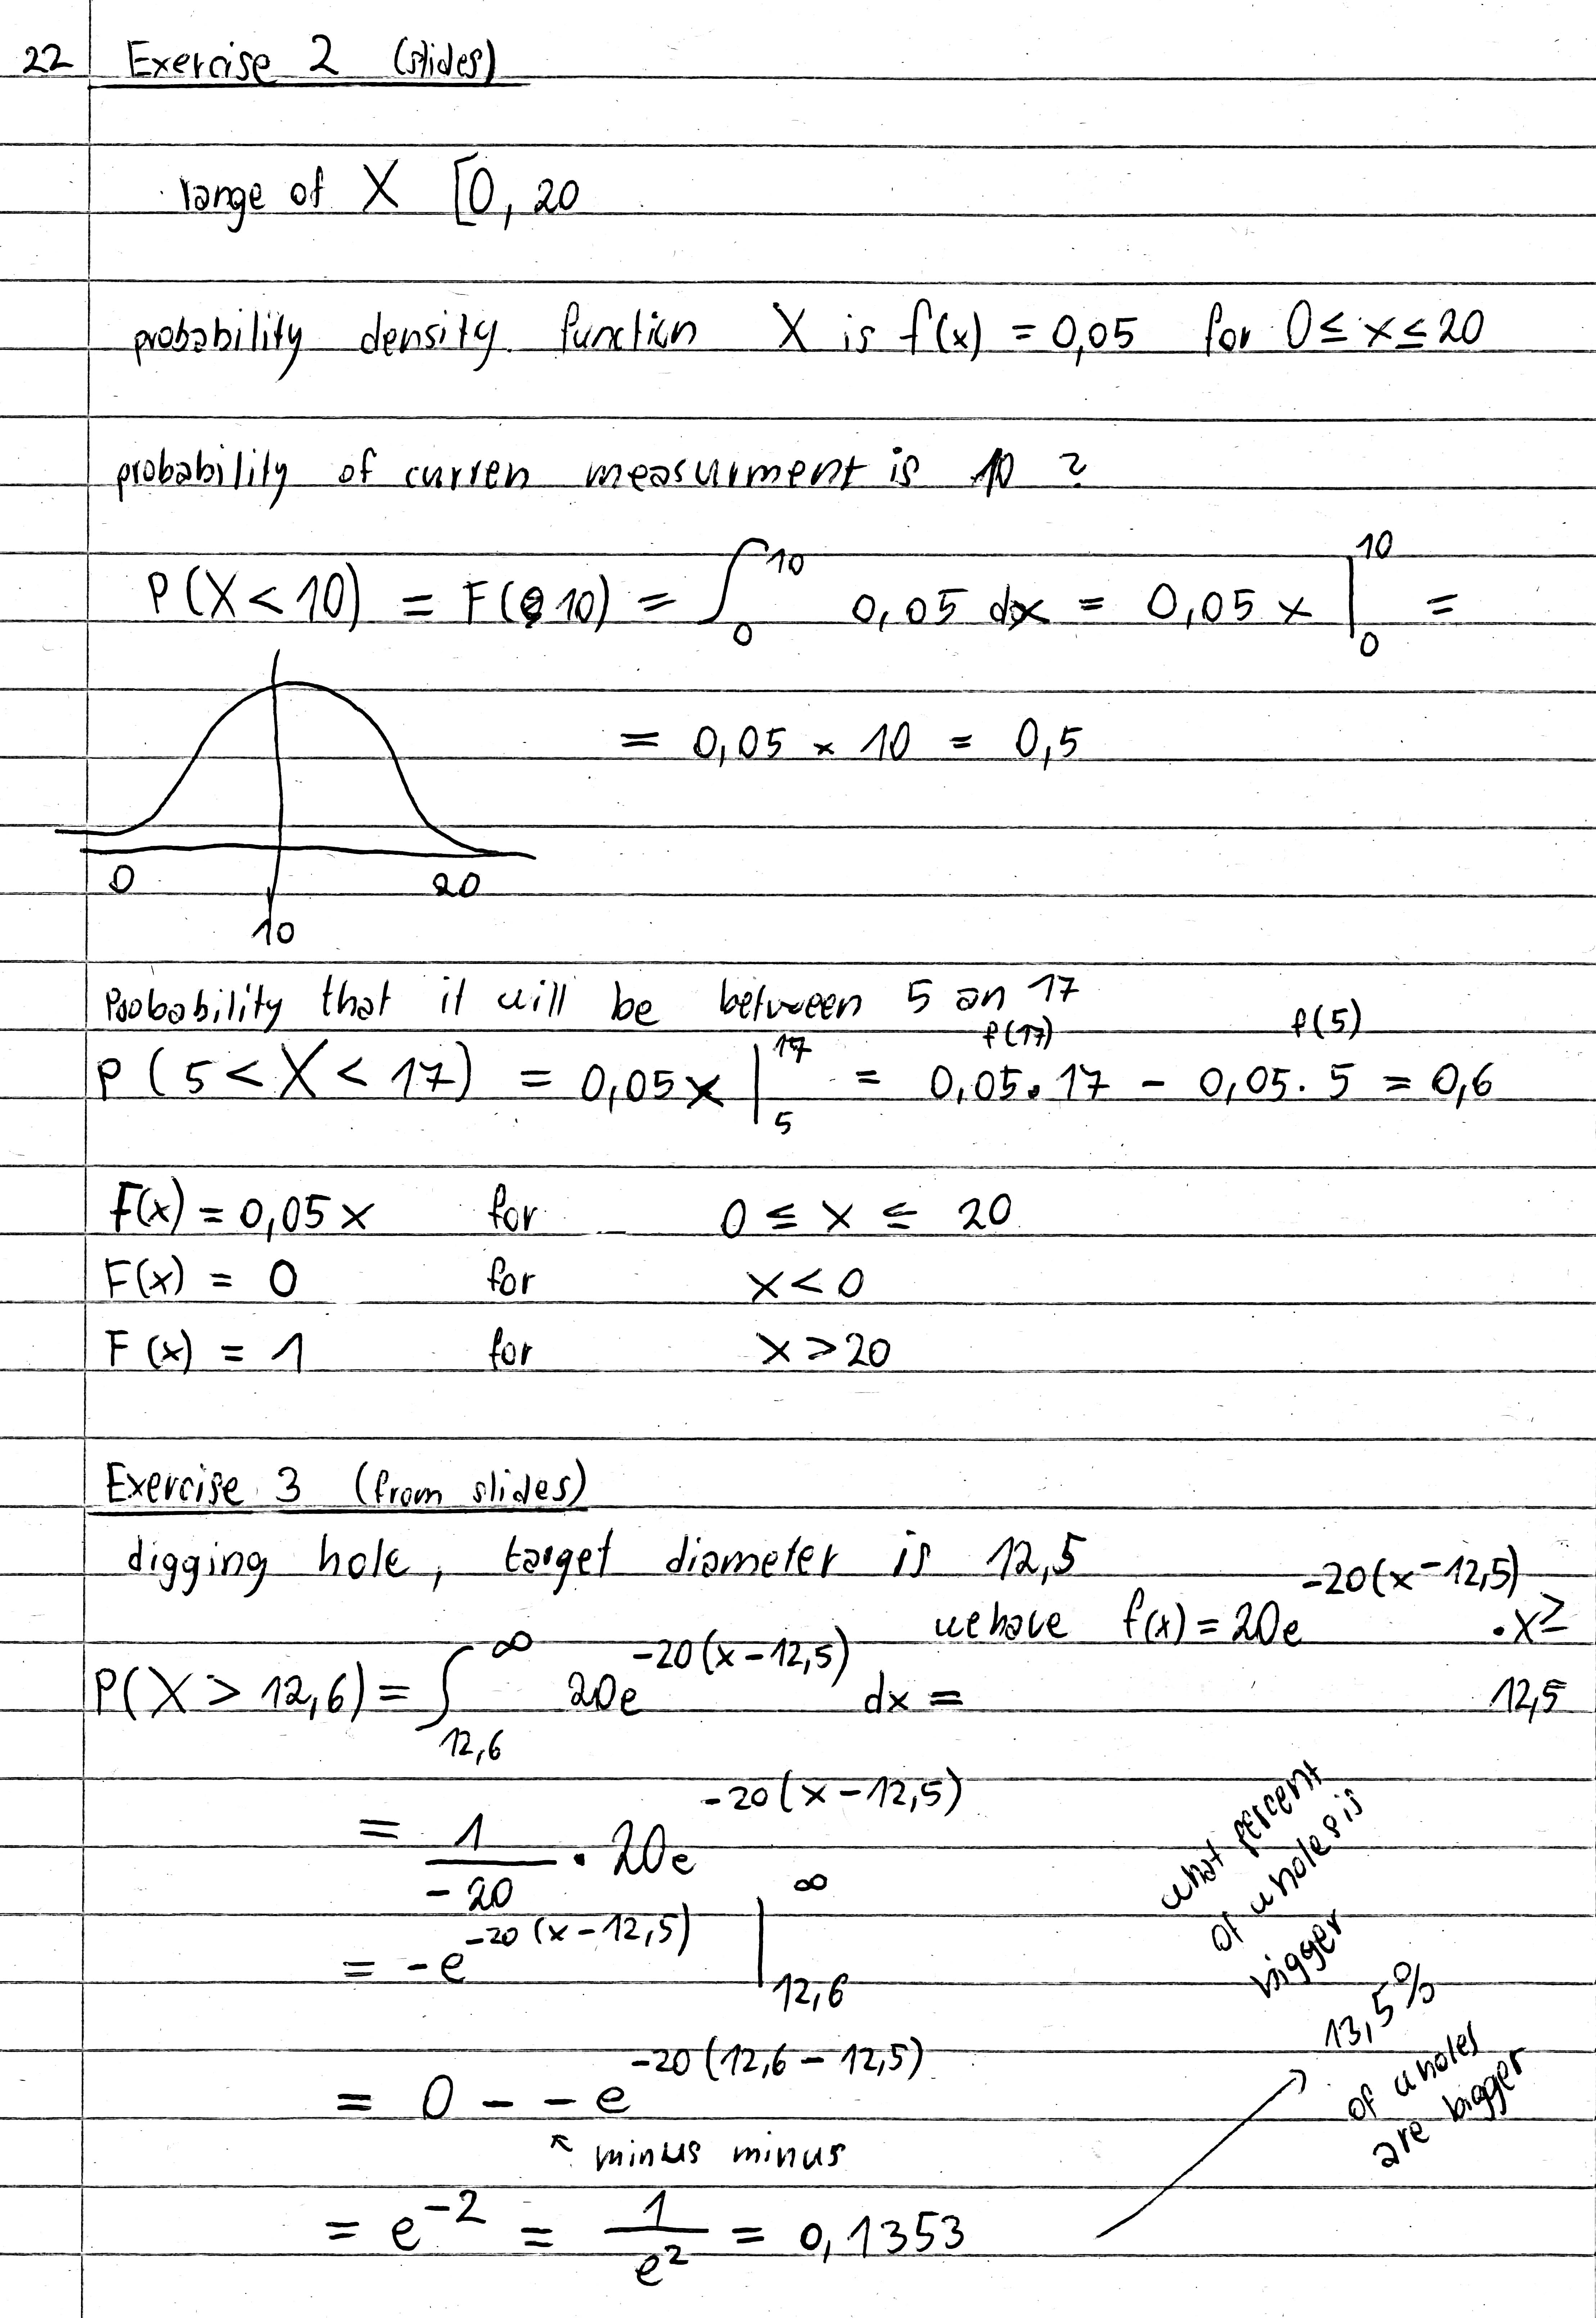 22 Exercise 2 (slides)
range of X [0, 20
probability density function X is f(x) = 0,05 for 0 ≤ x ≤ 20
probability of curren measurment is 10 ?
P(X < 10) = F(10) = ∫₀¹⁰ 0,05 dx = 0,05 x |₀¹⁰ =
= 0,05 × 10 = 0,5
0 20
10
Probability that it will be between 5 an 17
f(17) f(5)
P ( 5 < X < 17) = 0,05x |₅¹⁷ = 0,05 · 17 - 0,05 · 5 = 0,6
F(x) = 0,05 x for 0 ≤ x ≤ 20
F(x) = 0 for x < 0
F(x) = 1 for x > 20
Exercise 3 (from slides)
digging hole, target diameter is 12,5
we have f(x) = 20e^-20(x-12,5) · x ≥ 12,5
P(X > 12,6) = ∫_12,6^∞ 20e^-20(x-12,5) dx =
= 1/-20 · 20e^-20(x-12,5)
= -e^-20(x-12,5) |_12,6^∞
what percent
of wholes is
bigger
= 0 - - e^-20(12,6 - 12,5)
minus minus
= e^-2 = 1/e² = 0,1353
13,5%
of wholes
are bigger